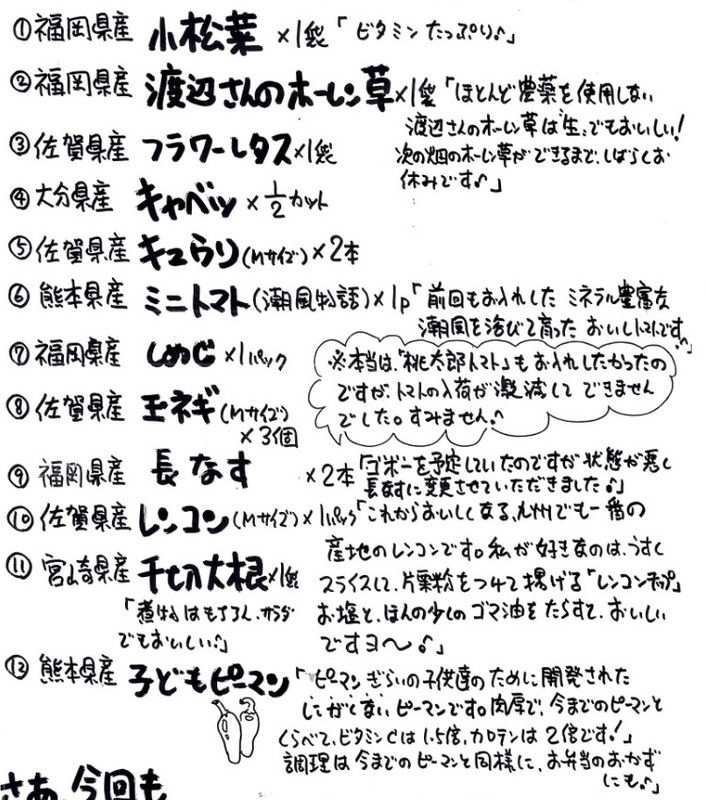 ①福岡県産 小松菜 ×1袋「ビタミンたっぷり♪」
②福岡県産 渡辺さんのホーレン草×1袋「ほとんど農薬を使用しない
渡辺さんのホーレン草は"生"でもおいしい!
次の畑のホーレン草ができるまで、しばらくお
休みです♪」
③佐賀県産 フラワーレタス×1袋
④大分県産 キャベツ×1/2カット
⑤佐賀県産 キュウリ(Mサイズ)×2本
⑥熊本県産 ミニトマト(潮風物語)×1p「前回もお入れした ミネラル豊富な
潮風を浴びて育った おいしいトマトです♪」
⑦福岡県産 しめじ×1パック
※本当は、「桃太郎トマト」もお入れしたかったの
ですが、トマトの入荷が激減して できません
でした。すみません。
⑧佐賀県産 玉ネギ(Mサイズ)
×3個
⑨福岡県産 長なす ×2本「ゴボーを予定していたのですが 状態が悪く
長なすに変更させていただきました♪」
⑩佐賀県産 レンコン(Mサイズ)×1パック「これからおいしくなる、九州でも一番の
産地のレンコンです。私が好きなのは、うすく
スライスして、片栗粉をつけて揚げる「レンコンチップ」
お塩と、ほんの少しのゴマ油をたらすと、おいしい
ですヨ〜♪」
⑪宮崎県産 千切大根×1袋
「煮物はもちろん、サラダ
でもおいしい♪」
⑫熊本県産 子どもピーマン「ピーマンぎらいの子供達のために開発された
しにがくないピーマンです。肉厚で、今までのピーマンと
くらべて、ビタミンCは1.5倍、カロテンは2倍です!」
調理は今までのピーマンと同様に、お弁当のおかず
にも♪」
さあ、今回も